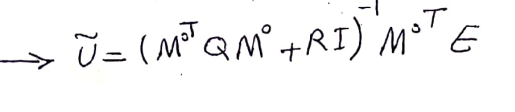 → Ũ = (M°ᵀ Q M° + RI)⁻¹ M°ᵀ E